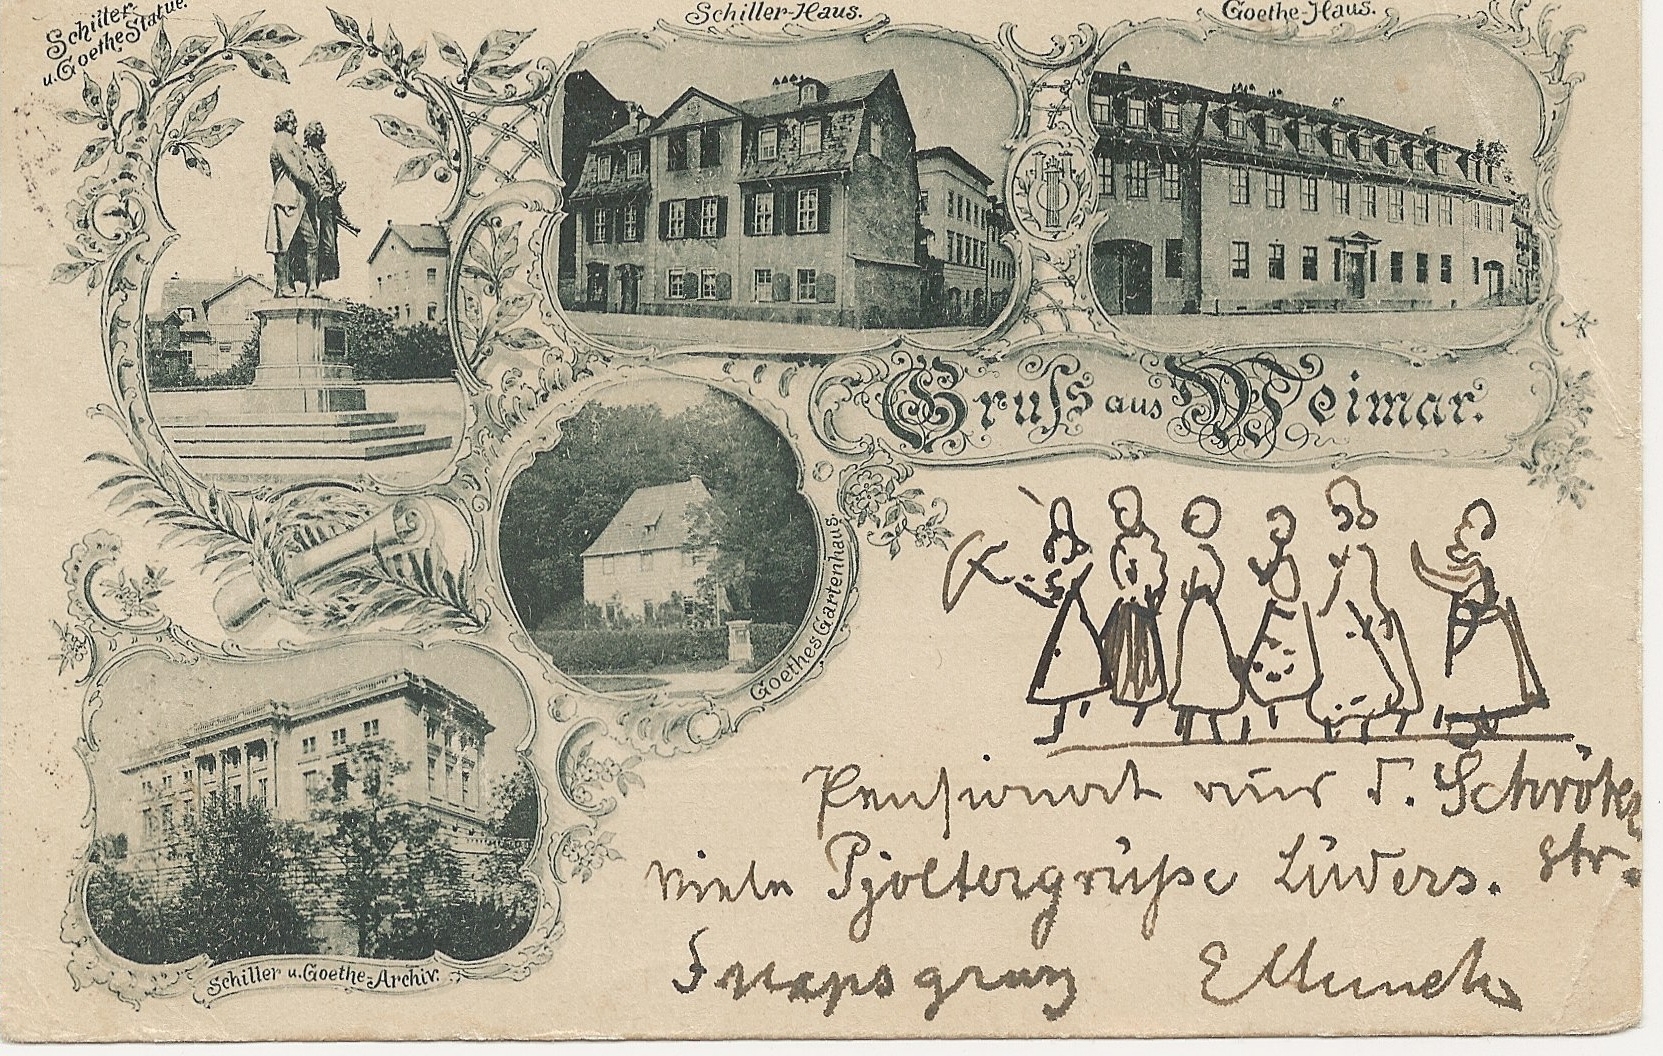 Schiller-
u. Goethe Statue.
Schiller-Haus.
Goethe-Haus.
Gruss aus Weimar.
Goethes Gartenhaus.
Schiller u. Goethe-Archiv.
Pensionat aus d. Schröter
str.
Viele Pjoltergrüße Lüders.
E Munch